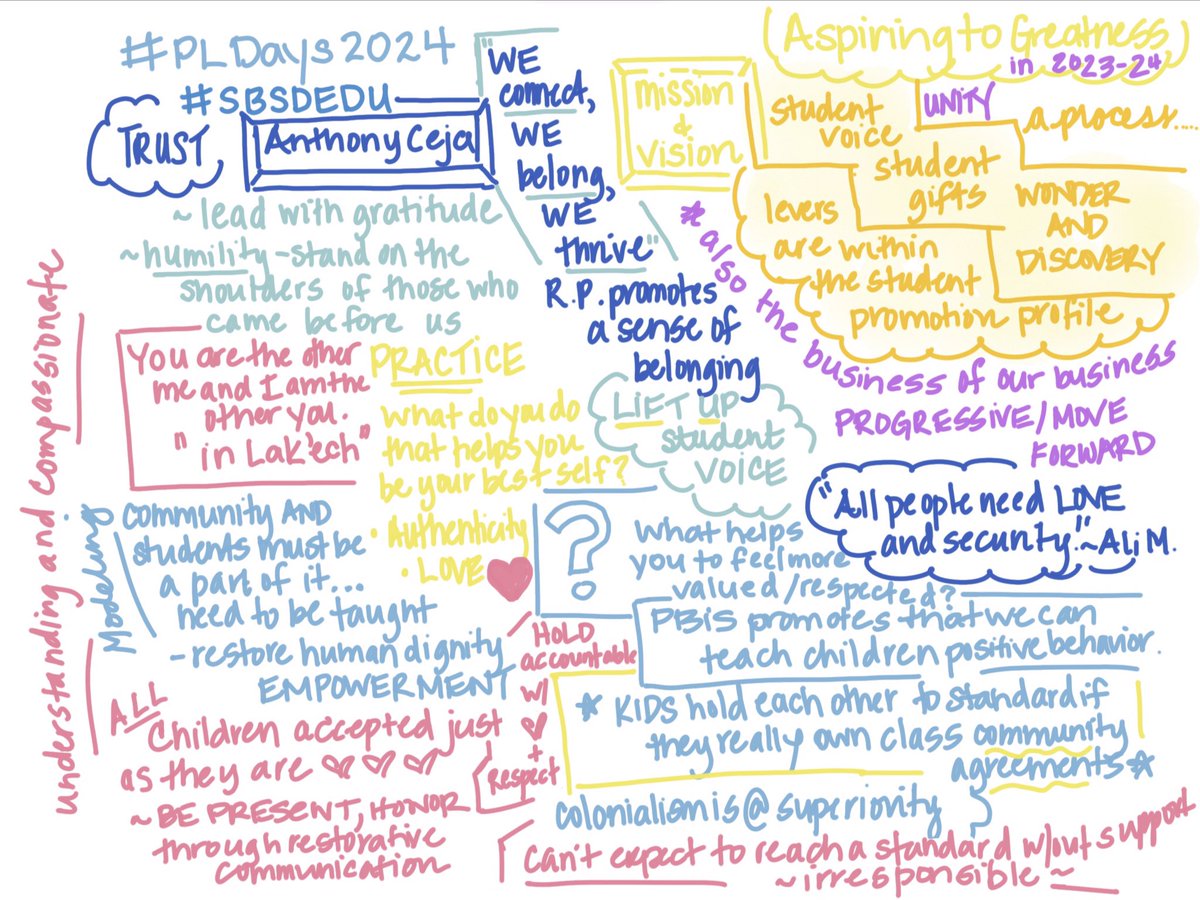 #PLDays2024
#SBSDEDU
TRUST
Anthony Ceja
"WE
connect,
WE
belong,
WE
thrive"
~lead with gratitude
~humility-stand on the
shoulders of those who
came before us
R.P. promotes
a sense of
belonging
mission
&
vision
Aspiring to Greatness
in 2023-24
student
voice
UNITY
a process....
student
gifts
levers
are within
the student
promotion profile
WONDER
AND
DISCOVERY
* also the business of our business
PROGRESSIVE/MOVE
FORWARD
understanding and compassionate
You are the other
me and I am the
other you.
"in Lak'ech"
PRACTICE
what do you do
that helps you
be your best self?
• Authenticity
• LOVE
LIFT UP
student
VOICE
"All people need LOVE
and security."~Ali M.
Modeling:
community AND
students must be
a part of it...
need to be taught
-restore human dignity
EMPOWERMENT
?
What helps
you to feel more
valued/respected?
PBIS promotes that we can
teach children positive behavior.
HOLD
accountable
w/
+
Respect
* KIDS hold each other to standard if
they really own class community
agreements*
ALL
Children accepted just
as they are
~BE PRESENT, HONOR
through restorative
communication
colonialism is @ superiority
can't expect to reach a standard w/out support
~irresponsible~